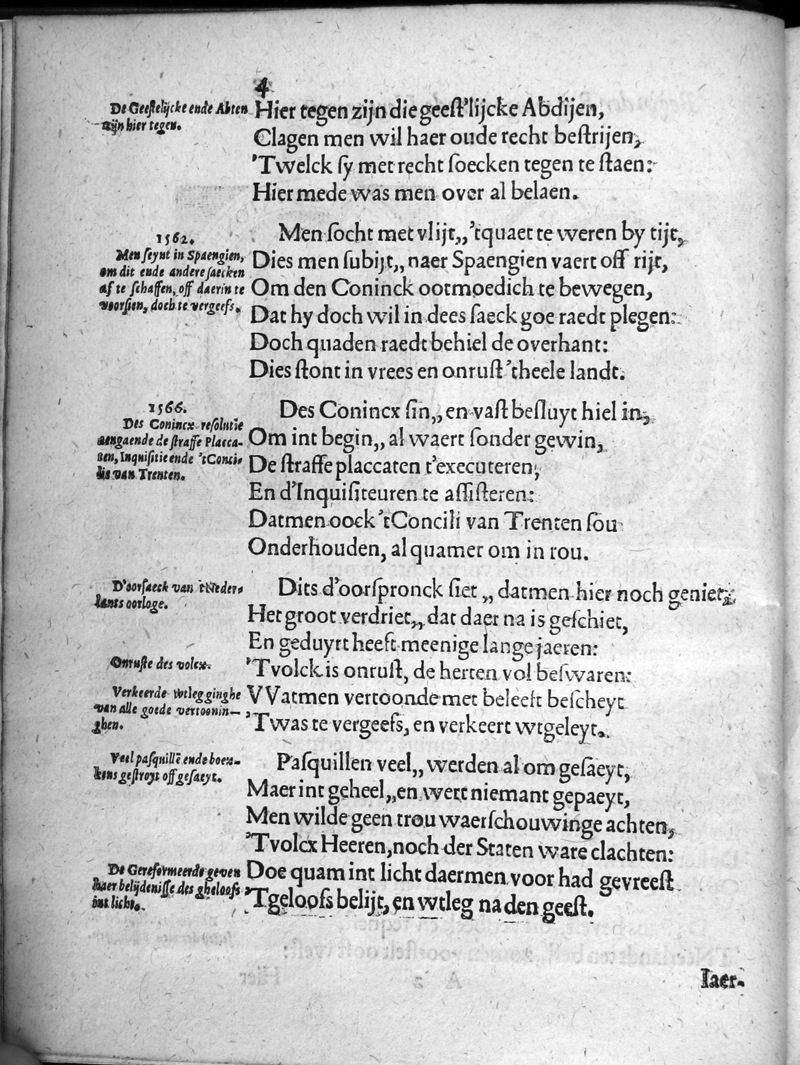 4
De Geeſtelijcke ende Abten
zijn hier tegen.
Hier tegen zijn die geeſt'lijcke Abdijen,
Clagen men wil haer oude recht beſtrijen,
'Twelck ſy met recht ſoecken tegen te ſtaen:
Hier mede was men over al belaen.
1562.
Men ſeynt in Spaengien,
om dit ende andere ſaecken
af te ſchaffen, off daerin te
voorſien, doch te vergeefs.
Men ſocht met vlijt,, 'tquaet te weren by tijt,
Dies men ſubijt,, naer Spaengien vaert off rijt,
Om den Coninck ootmoedich te bewegen,
Dat hy doch wil in dees ſaeck goe raedt plegen:
Doch quaden raedt behiel de overhant:
Dies ſtont in vrees en onruſt 'theele landt.
1566.
Des Conincx reſolutie
aengaende de ſtraffe Placca-
ten, Inquiſitie ende 'tConci-
lie van Trenten.
Des Conincx ſin,, en vaſt beſluyt hiel in,
Om int begin,, al waert ſonder gewin,
De ſtraffe placcaten t'executeren,
En d'Inquiſiteuren te aſſiſteren:
Datmen oock 'tConcili van Trenten ſou
Onderhouden, al quamer om in rou.
D'oorſaeck van 'tNeder-
lants oorloge.
Dits d'oorſpronck ſiet,, datmen hier noch geniet,
Het groot verdriet,, dat daer na is geſchiet,
En geduyrt heeft meenige lange jaeren:
Onruſte des volcx.
'Tvolck is onruſt, de herten vol beſwaren:
Verkeerde wtlegginghe
van alle goede vertoonin-
ghen.
VVatmen vertoonde met beleeft beſcheyt
'Twas te vergeefs, en verkeert wtgeleyt.
Veel paſquillē ende boex-
kens geſtroyt off geſaeyt.
Paſquillen veel,, werden al om geſaeyt,
Maer int geheel,, en wert niemant gepaeyt,
Men wilde geen trou waerſchouwinge achten,
'Tvolcx Heeren, noch der Staten ware clachten:
De Gereformeerde geven
haer belijdeniſſe des gheloofs
int licht.
Doe quam int licht daermen voor had gevreeſt
'Tgeloofs belijt, en wtleg na den geeſt.
Iaer-